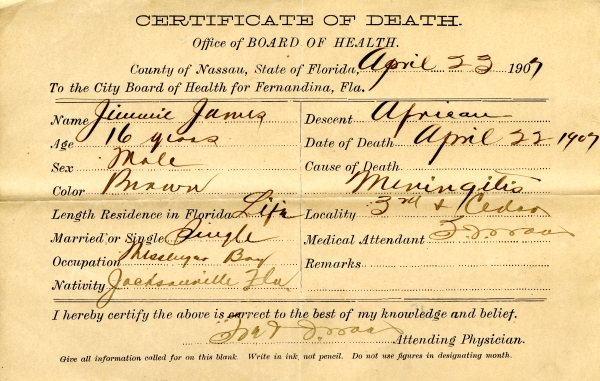 CERTIFICATE OF DEATH.
Office of BOARD OF HEALTH.
County of Nassau, State of Florida, April 23 1907
To the City Board of Health for Fernandina, Fla.
Name Jimmie James
Age 16 years
Sex Male
Color Brown
Length Residence in Florida Life
Married or Single Single
Occupation Messenger Boy
Nativity Jacksonville Fla
Descent African
Date of Death April 22 1907
Cause of Death
Meningitis
Locality 3rd & Cedar
Medical Attendant
Remarks
I hereby certify the above is correct to the best of my knowledge and belief.
Attending Physician.
Give all information called for on this blank. Write in ink, not pencil. Do not use figures in designating month.